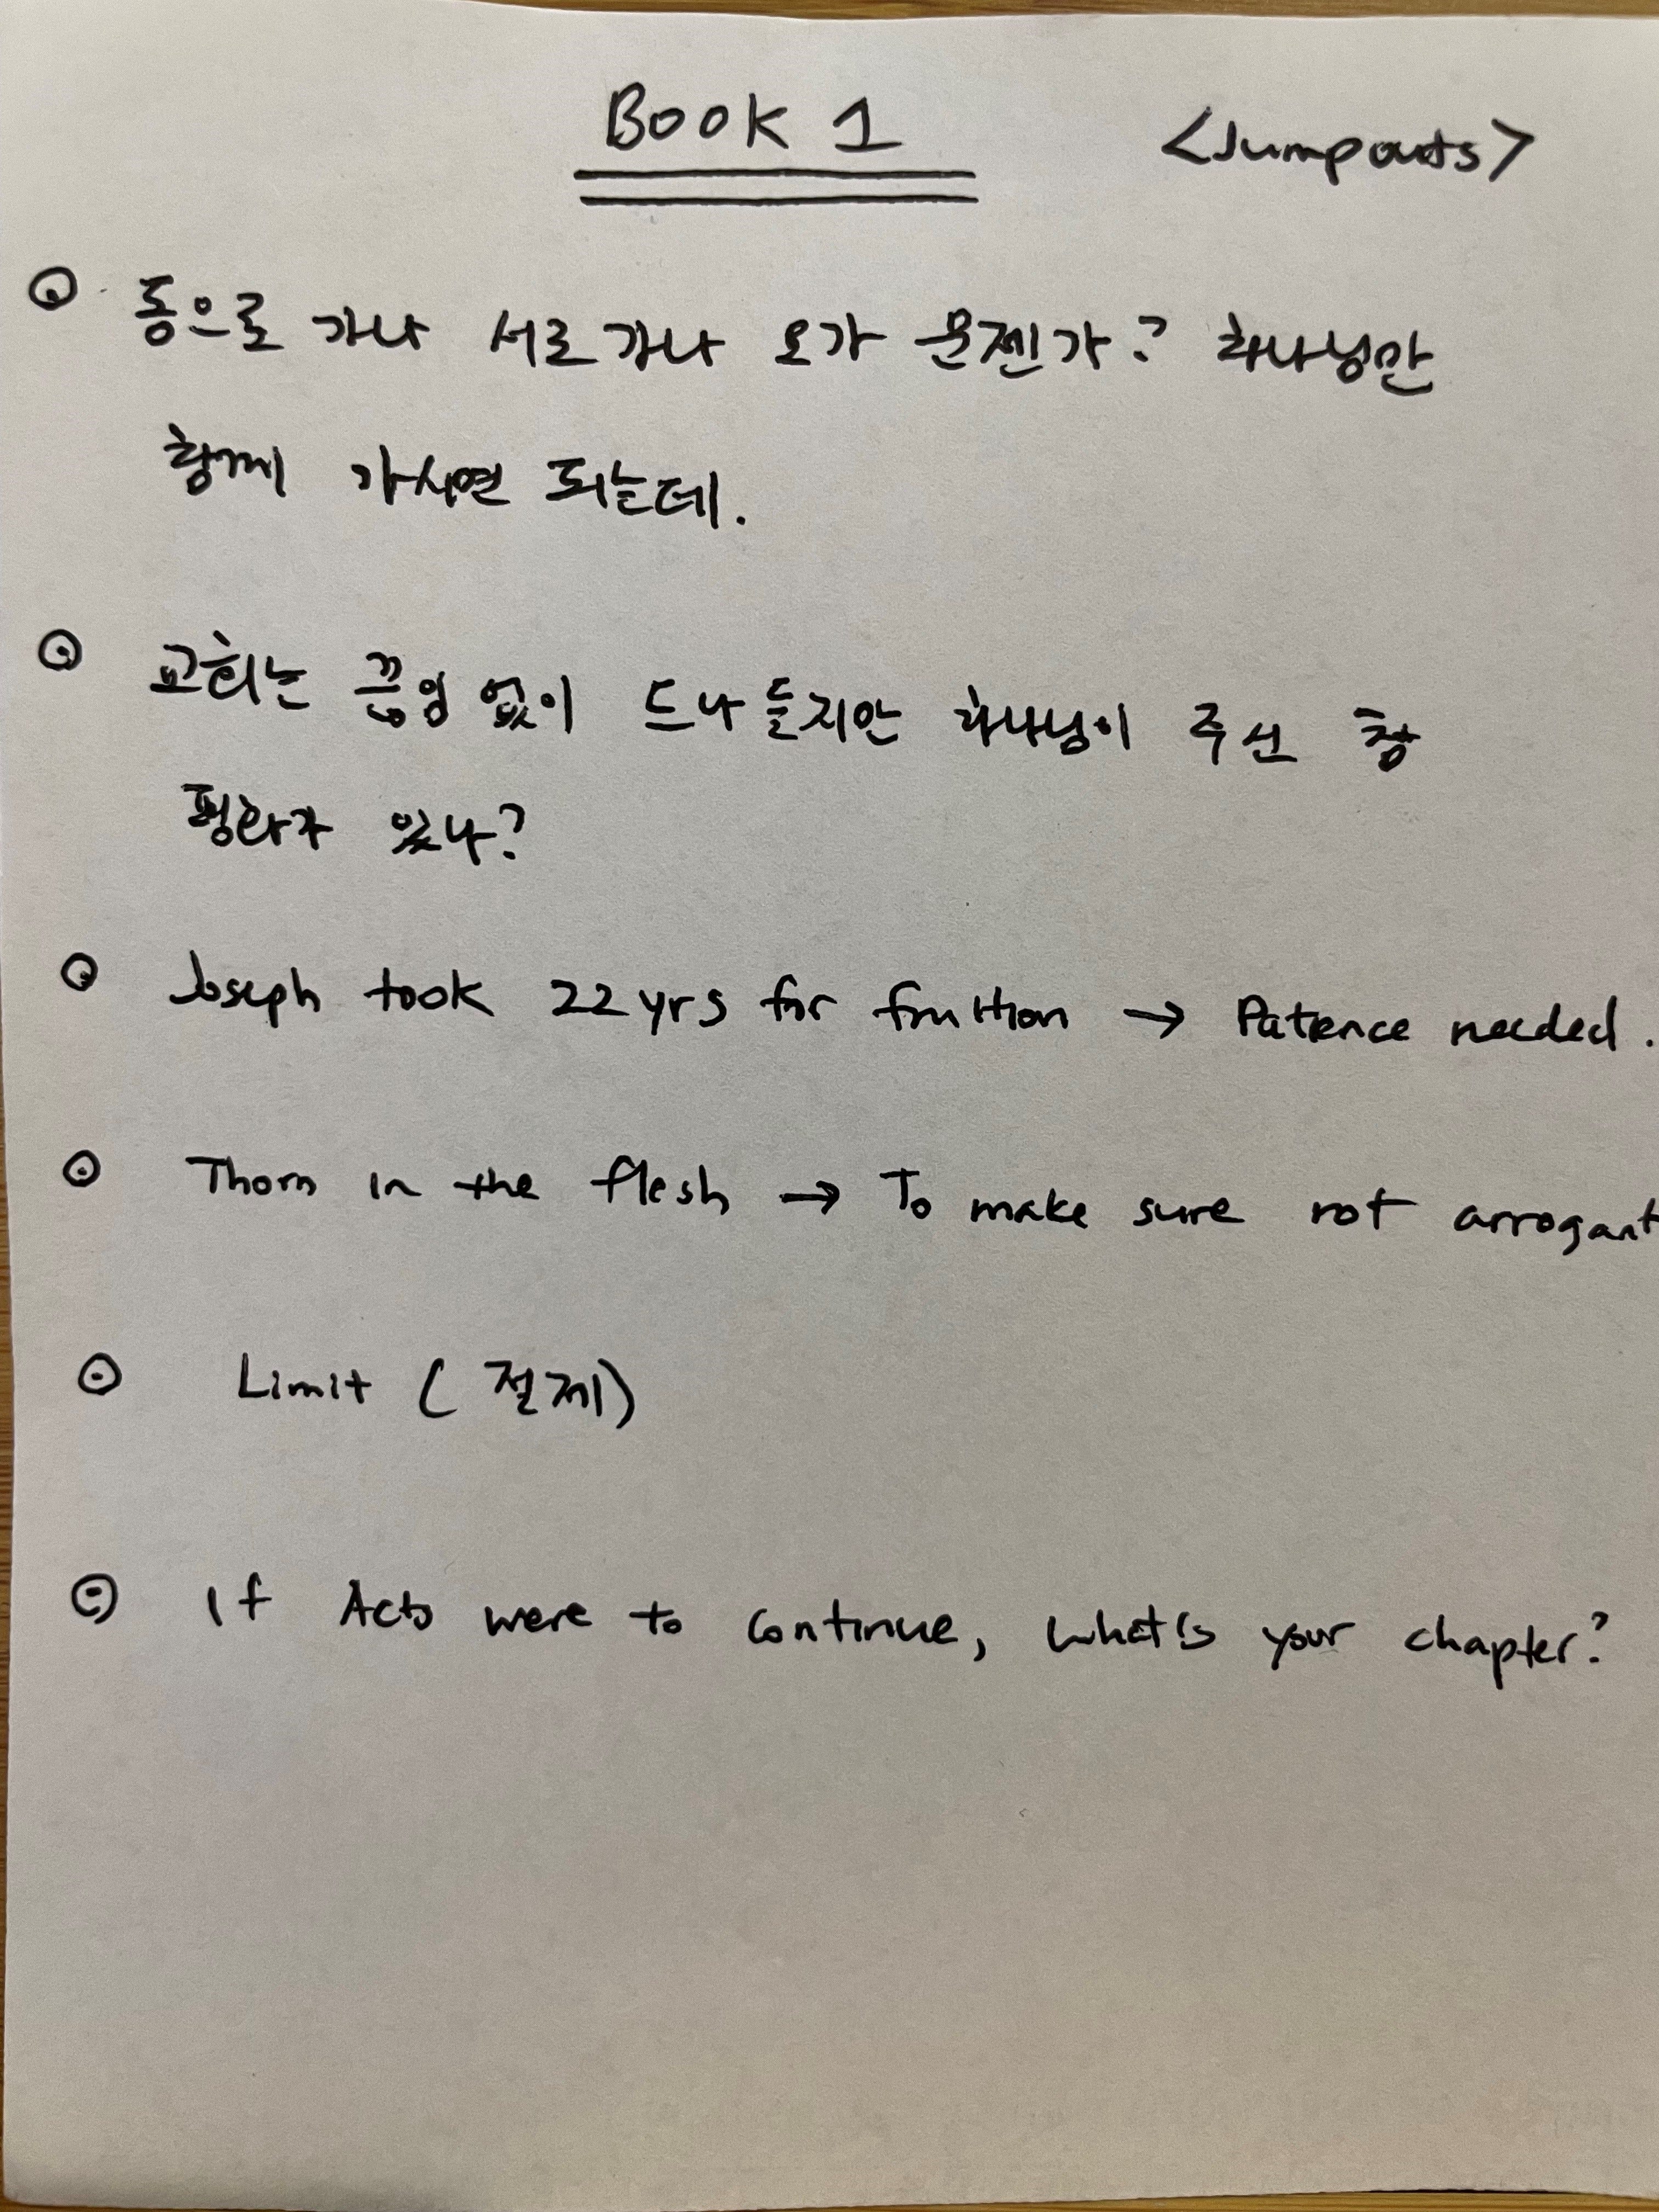 BOOK 1 <Jumpouts>
동으로 가나 서로 가나 오가 문젠가? 하나님만
함께 가시면 되는데.
교회는 끊임 없이 드나들지만 하나님이 주신 참
평화가 있나?
Joseph took 22 yrs for fruition → Patience needed.
Thorn in the flesh → To make sure not arrogant
Limit (절제)
If Acts were to continue, what's your chapter?